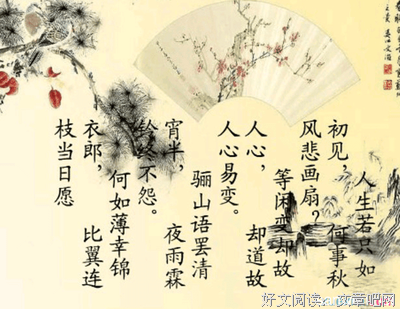 人生若只如
初见，何事秋
风悲画扇？
等闲变却故
人心，却道故
人心易变。
骊山语罢清
宵半，夜雨霖
铃终不怨。
何如薄幸锦
衣郎，比翼连
枝当日愿
好文阅读：文章吧网